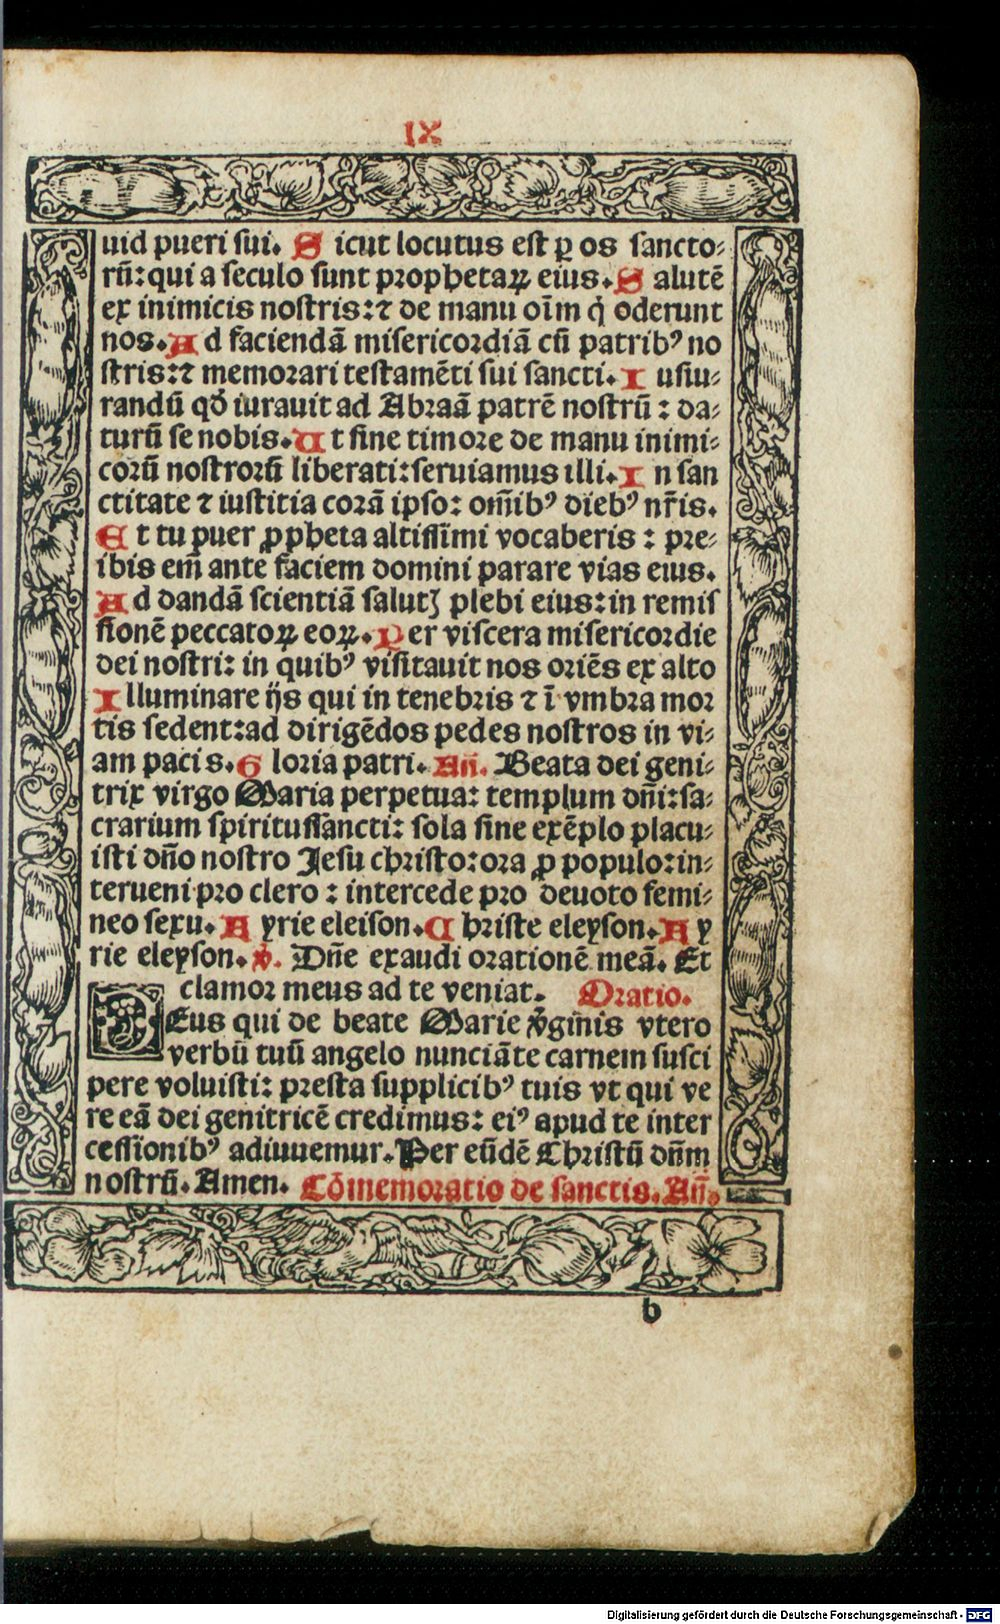 IX
uid pueri sui. S icut locutus est ꝑ os sancto⸗
rū: qui a seculo sunt prophetaꝝ eius. S alutē
ex inimicis nostris: ⁊ de manu oīm q̇ oderunt
nos. A d faciendā misericordiā cū patribꝰ no
stris: ⁊ memorari testamēti sui sancti. I usiu⸗
randū qđ iurauit ad Abraā patrē nostrū : da⸗
turū se nobis. U t sine timore de manu inimi⸗
corū nostrorū liberati: seruiamus illi. I n san
ctitate ⁊ iustitia corā ipso: om̄ibꝰ diebꝰ nr̄is.
E t tu puer ꝓpheta altissimi vocaberis : pre⸗
ibis em̄ ante faciem domini parare vias eius.
A d dandā scientiā salutꝭ plebi eius: in remis
sionē peccatoꝝ eoꝝ. P er viscera misericordie
dei nostri: in quibꝰ visitauit nos oriēs ex alto
I lluminare ijs qui in tenebris ⁊ ī vmbra mor
tis sedent: ad dirigēdos pedes nostros in vi⸗
am pacis. G loria patri. Añ. Beata dei geni⸗
trix virgo Maria perpetua: templum dñi: sa⸗
crarium spiritussancti: sola sine exēplo placu⸗
isti dño nostro Jesu christo: ora ꝓ populo: in⸗
terueni pro clero : intercede pro deuoto femi⸗
neo sexu. K yrie eleison. C hriste eleyson. K y
rie eleyson. ℣. Dñe exaudi orationē meā. Et
clamor meus ad te veniat. Oratio.
DEus qui de beate Marie v̄ginis vtero
verbū tuū angelo nunciāte carnem susci
pere voluisti: presta supplicibꝰ tuis vt qui ve
re eā dei genitricē credimus: eiꝰ apud te inter
cessionibꝰ adiuuemur. Per eūdē Christū dn̄m
nostrū. Amen. Cōmemoratio de sanctis. Añ.
b
Digitalisierung gefördert durch die Deutsche Forschungsgemeinschaft - DFG